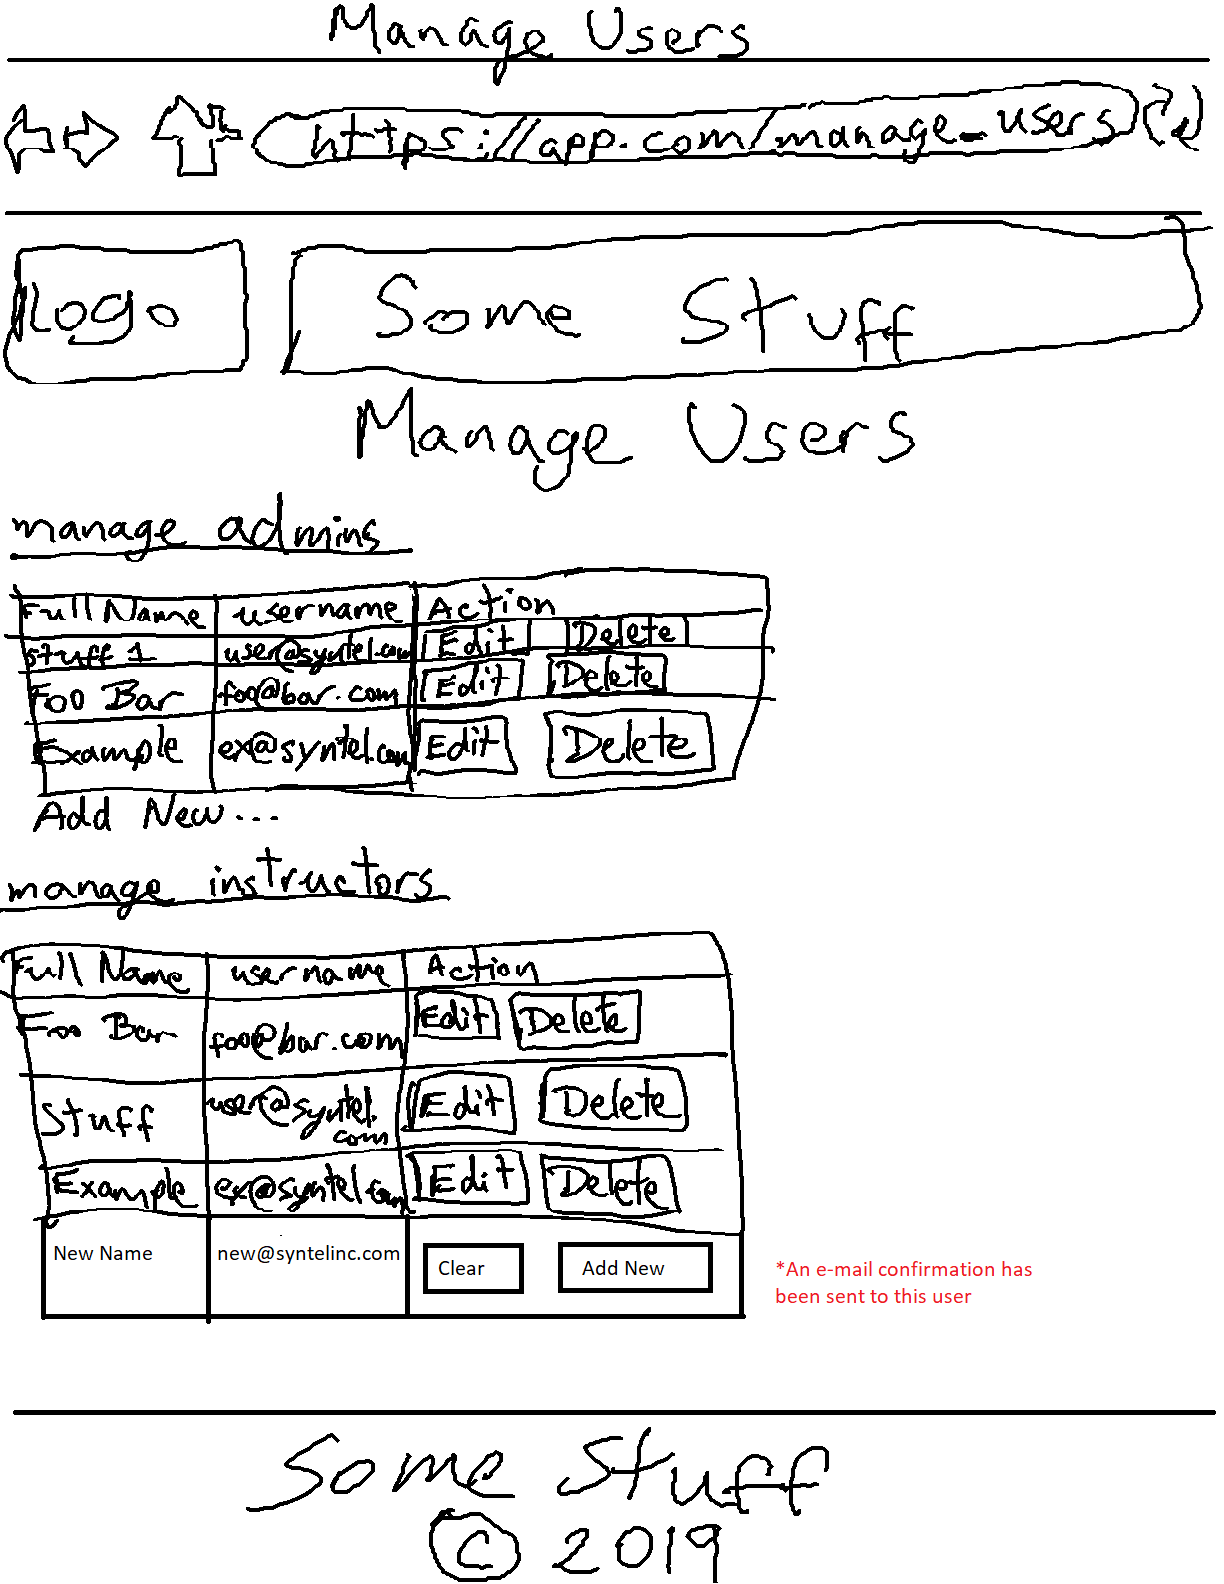 Manage Users
https://app.com/manage_users
Logo
Some Stuff
Manage Users
manage admins
Full Name username Action
stuff 1 user@syntel.com Edit Delete
Foo Bar foo@bar.com Edit Delete
Example ex@syntel.com Edit Delete
Add New...
manage instructors
Full Name username Action
Foo Bar foo@bar.com Edit Delete
Stuff user@syntel. Edit Delete
com
Example ex@syntel.com Edit Delete
New Name new@syntelinc.com Clear Add New
*An e-mail confirmation has
been sent to this user
Some Stuff
© 2019